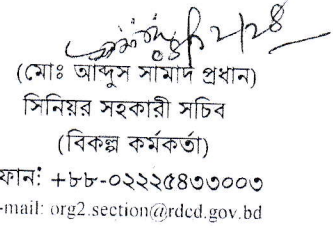 (মোঃ আব্দুস সামাদ প্রধান)
সিনিয়র সহকারী সচিব
(বিকল্প কর্মকর্তা)
ফোন: +৮৮-০২২২৫৪৩৩০০৩
-mail: org2.section@rdcd.gov.bd